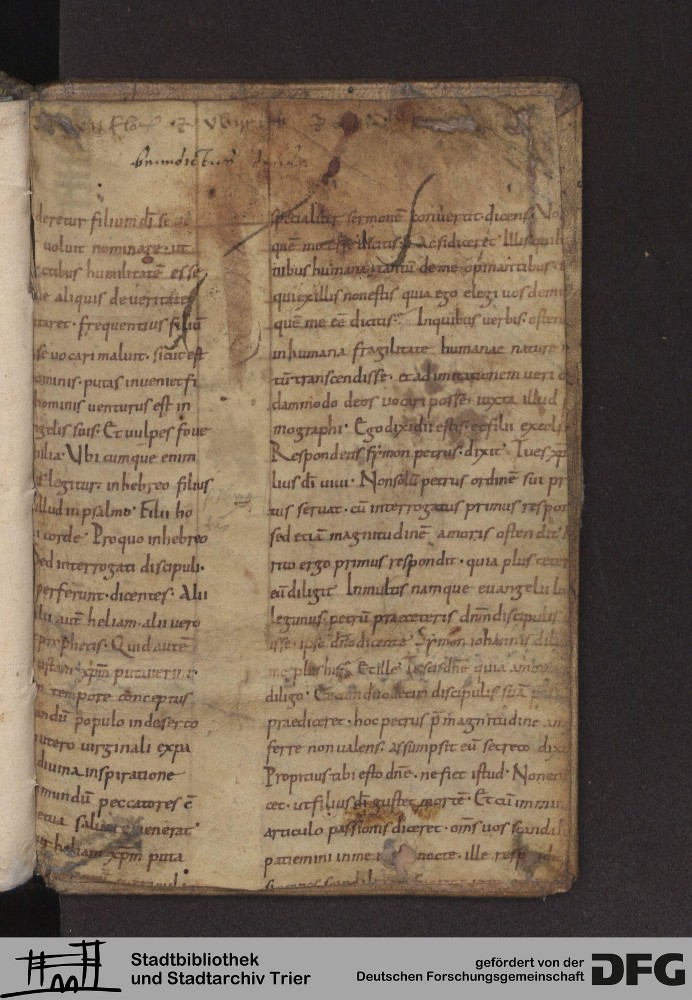 benedictum
deretur filium dī se
voluit nominare. ut
ctibus humilitatē esse
aliquis de veritate
taret. frequentius filiū
se vocari maluit. sicut est
ominis. putas inveniet fi
hominis venturus est in
ngelis suis. Et vulpes fove
bilia. Ubi cumque enim
legitur. in hebreo filius
illud in psalmo. Filii ho
corde. Pro quo in hebreo
Sed interrogati discipuli.
perferunt. dicentes. Alii
alii autē heliam. alii vero
prophetis. Quid autē
xp̄m putaverint.
tempore conceptus
endū populo in deserto
utero virginali expa
divina inspiratione
mundū peccatores ē
heliam xp̄m puta
specialiter sermonē convertit. dicens. Vo
quē me esse dicitis. Ac si diceret. Illis
nibus humana tantū de me opinantibus.
qui ex illis non estis quia ego elegi vos de
quē me eē dicitis. In quibus verbis. osten
in humana fragilitate humanae nature
tū transcendisse. et ad imitationem veri
dammodo deos vocari posse. iuxta illud
mographi. Ego dixi dii estis. et filii excels
Respondens symon petrus. dixit. Tu es xp̄s
lius dī vivi. Non solū petrus ordinē sui pr
tus servat. cū interrogatus primus respon
sed etiā magnitudinē amoris ostendit.
rito ergo primus respondit. quia plus ceter
eū diligit. In multis namque evangelii lo
legimus. petrū prae ceteris dn̄m discipulis
isse. ipso dn̄o dicente. Symon iohannis dili
me plus his. Et ille. Tu scis dn̄e quia amo
diligo. discipulis suā
praediceret. hoc petrus p̄ magnitudine am
ferre non valens. assumpsit eū secreto dix
Propitius tibi esto dn̄e. ne fiet istud. Non
cet. ut filius dī gustet mortē. Et cū
articulo passionis diceret. om̄s vos scandal
patiemini in me nocte. ille resp
Stadtbibliothek
und Stadtarchiv Trier
gefördert von der
Deutschen Forschungsgemeinschaft
DFG